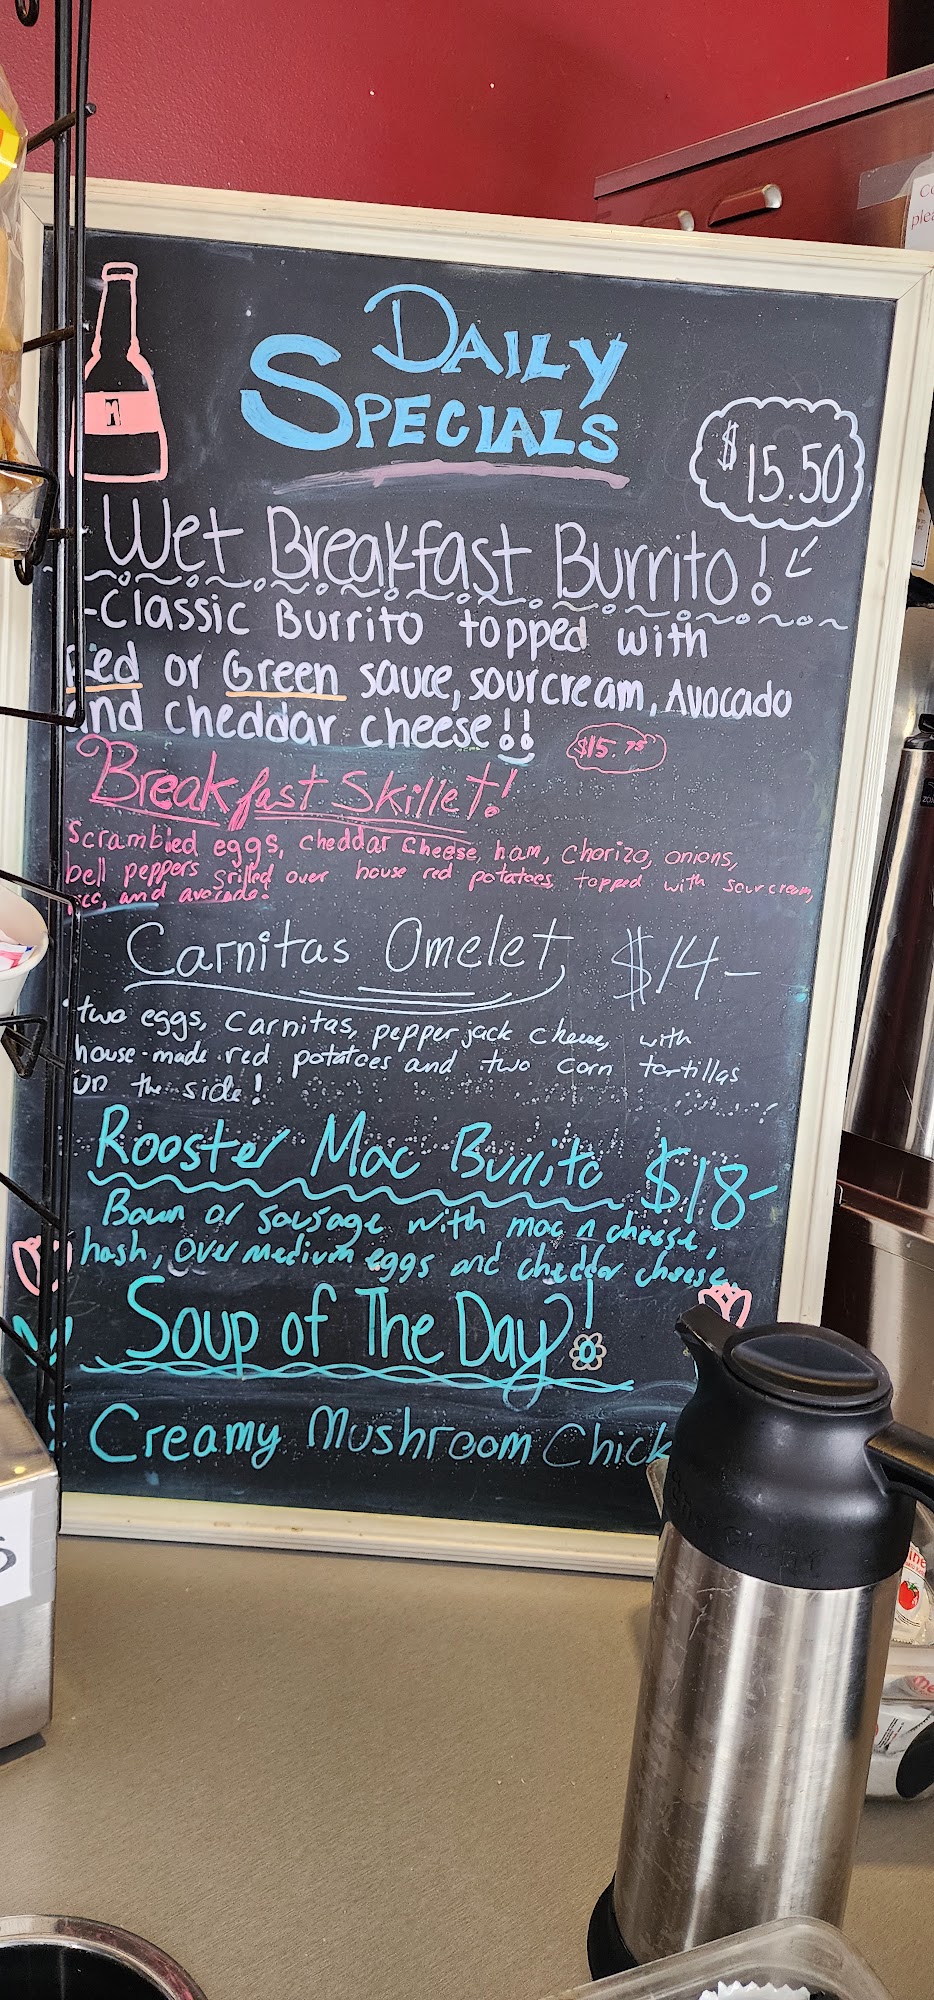 DAILY
SPECIALS
M
$15.50
Wet Breakfast Burrito!
-Classic Burrito topped with
Red or Green sauce, sour cream, Avocado
and cheddar cheese!!
$15.75
Breakfast Skillet!
Scrambled eggs, cheddar cheese, ham, chorizo, onions,
bell peppers grilled over house red potatoes, topped with sour cream,
and avocado!
Carnitas Omelet $14-
two eggs, carnitas, pepper jack cheese, with
house-made red potatoes and two corn tortillas
on the side!
Rooster Mac Burrito $18-
Bacon or sausage with mac n cheese,
hash, over medium eggs and cheddar cheese
Soup of The Day!
Creamy Mushroom Chick